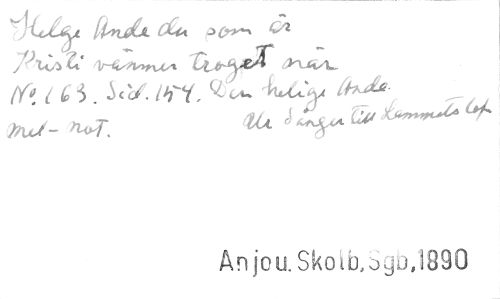 Helge Ande du som är
Kristi vänner troget när
No. 163. Sid. 154. Den helige Ande.
mel-not. Ur Sånger till Lammets lof
Anjou. Skolb, Sgb, 1890